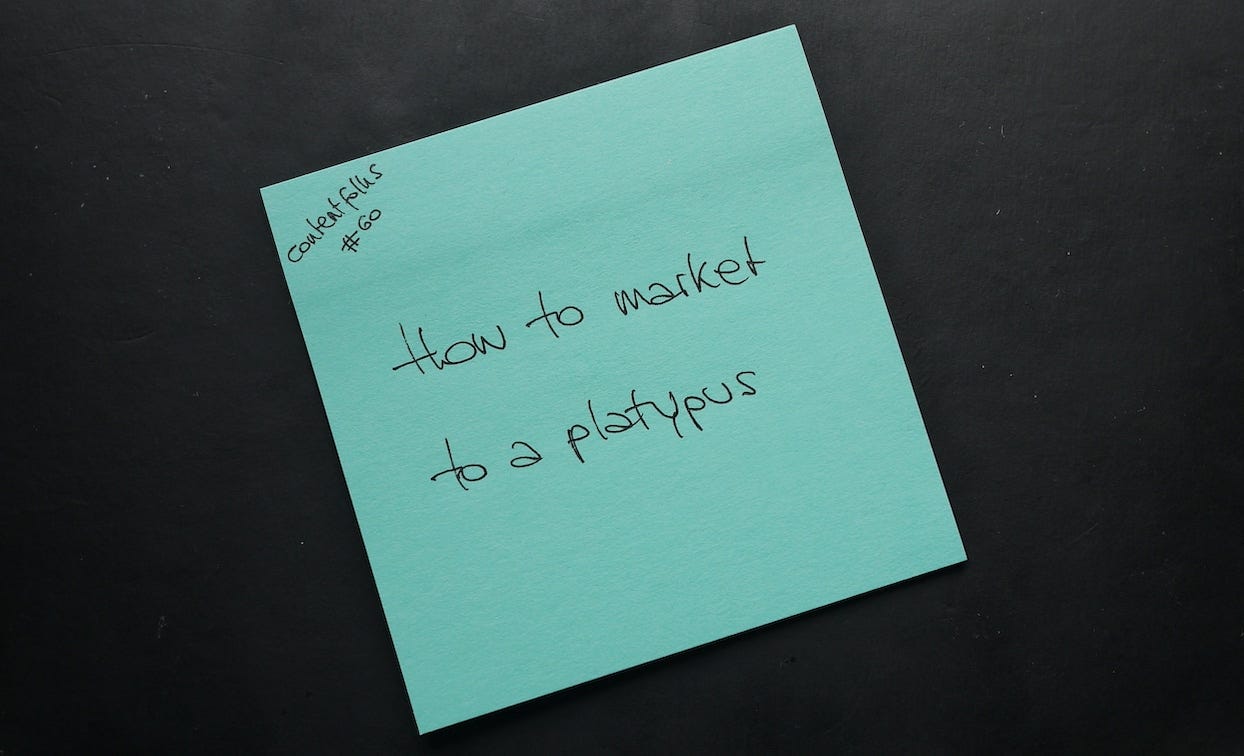 contentfolks
#60
How to market
to a platypus